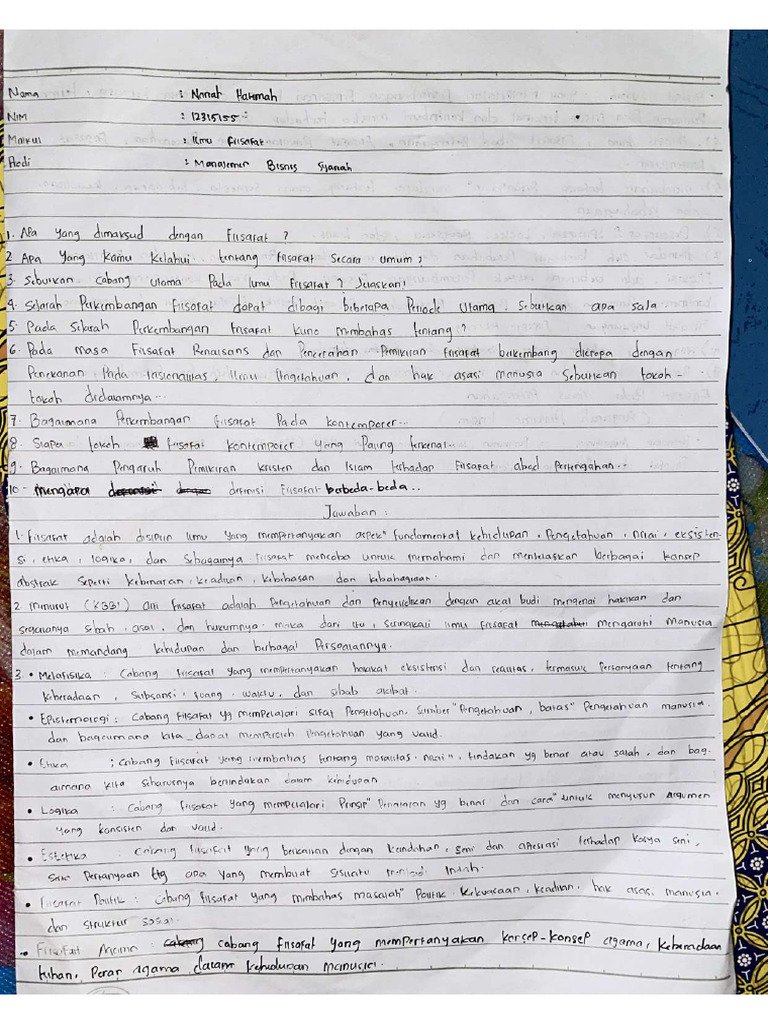 Nama : Noriah Harimah
NIM : 12315155
Matkul : Ilmu Filsafat
Prodi : Manajemen Bisnis Syariah
1. Apa yang dimaksud dengan Filsafat ?
2 Apa yang kamu ketahui tentang filsafat secara umum ?
3. Sebutkan cabang utama pada Ilmu Filsafat ? Jelaskan!
4. Sejarah Perkembangan filsafat dapat dibagi beberapa Periode utama. Sebutkan apa saja
5. Pada sejarah Perkembangan filsafat kuno membahas tentang ?
6. Pada masa Filsafat Renaisans dan Pencerahan Pemikiran filsafat berkembang dieropa dengan
Penekanan Pada rasionalitas, Ilmu Pngetahuan, dan hak asasi manusia Sebutkan tokoh-
tokoh didalamnya..
7. Bagaimana Perkembangan filsafat Pada kontemporer..
8. Siapa tokoh filsafat kontemporer yang Paling terkenal..
9. Bagaimana Pengaruh Pemikiran kristen dan Islam terhadap Filsafat abad Pertengahan..
10. mengapa definisi filsafat berbeda-beda..
Jawaban :
1. Filsafat adalah disiplin Ilmu yang mempertanyakan aspek" fundamental kehidupan, Pengetahuan, nilai, eksisten-
si, etika, logika, dan sebagainya. Filsafat mencoba untuk memahami dan menjelaskan berbagai konsep
abstrak seperti kebenaran, keadilan, kebebasan dan kebahagiaan.
2. Menurut (KBBI) arti filsafat adalah Pengetahuan dan Penyelidikan dengan akal budi mengenai hakikat dan
segalanya sebab, asal, dan hukumnya. maka dari itu, seringkali ilmu filsafat mengaruhi manusia
dalam memandang kehidupan dan berbagai Persoalannya.
3. • Metafisika : Cabang filsafat yang mempertanyakan hakikat eksistensi dan realitas, termasuk Pertanyaan tentang
keberadaan, Subsansi, ruang, waktu, dan sebab akibat.
• Epistemologi : Cabang filsafat yg mempelajari sifat Pengetahuan, Sumber" Pengetahuan, batas" Pengetahuan manusia
dan bagaimana kita dapat memperoleh Pengetahuan yang valid.
• Etika : Cabang filsafat yang membahas tentang moralitas. nilai", tindakan yg benar atau salah, dan bag
aimana kita seharusnya bertindakan dalam kehidupan
• Logika : Cabang filsafat yang mempelajari Prinsip" Penalaran yg benar dan cara" untuk menyusun argumen
yang konsisten dan valid.
• Estetika : Cabang filsafat yang berkaitan dengan keindahan, seni dan apresiasi terhadap karya seni,
serta Pertanyaan ttg apa yang membuat sesuatu Indah.
• Filsafat Politik : Cabang filsafat yang membahas masalah" Politik. kekuasaan, keadilan, hak asasi manusia,
dan struktur sosial.
• Filsafat Agama : cabang filsafat yang mempertanyakan konsep-konsep agama, keberadaan
tuhan, Peran agama dalam kehidupan manusia.